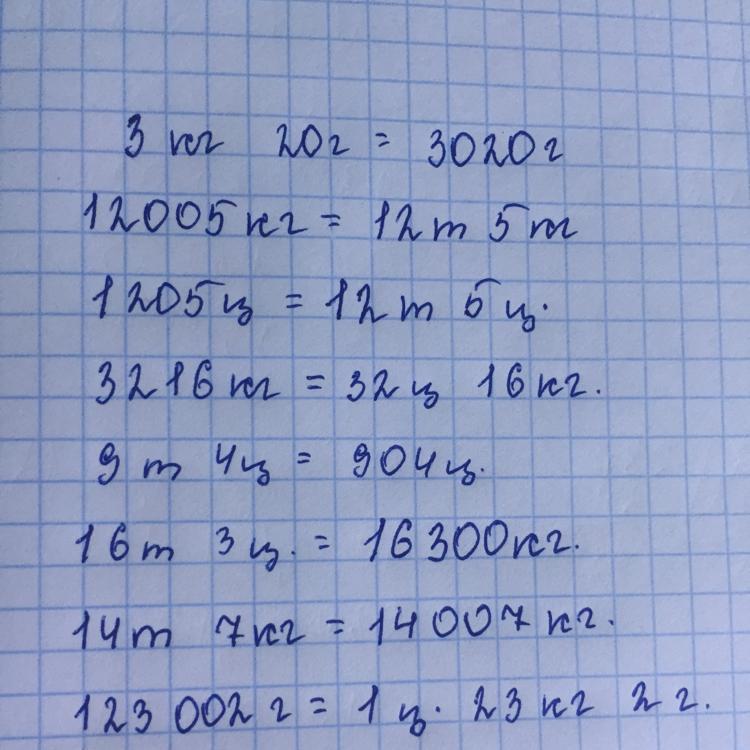 3 кг 20г = 3020г
12005кг = 12т 5кг
1205ц = 12т 5ц.
3216кг = 32ц 16кг.
9т 4ц = 904ц.
16т 3ц. = 16300кг.
14т 7кг = 14007кг.
123 002г = 1ц. 23кг 2г.